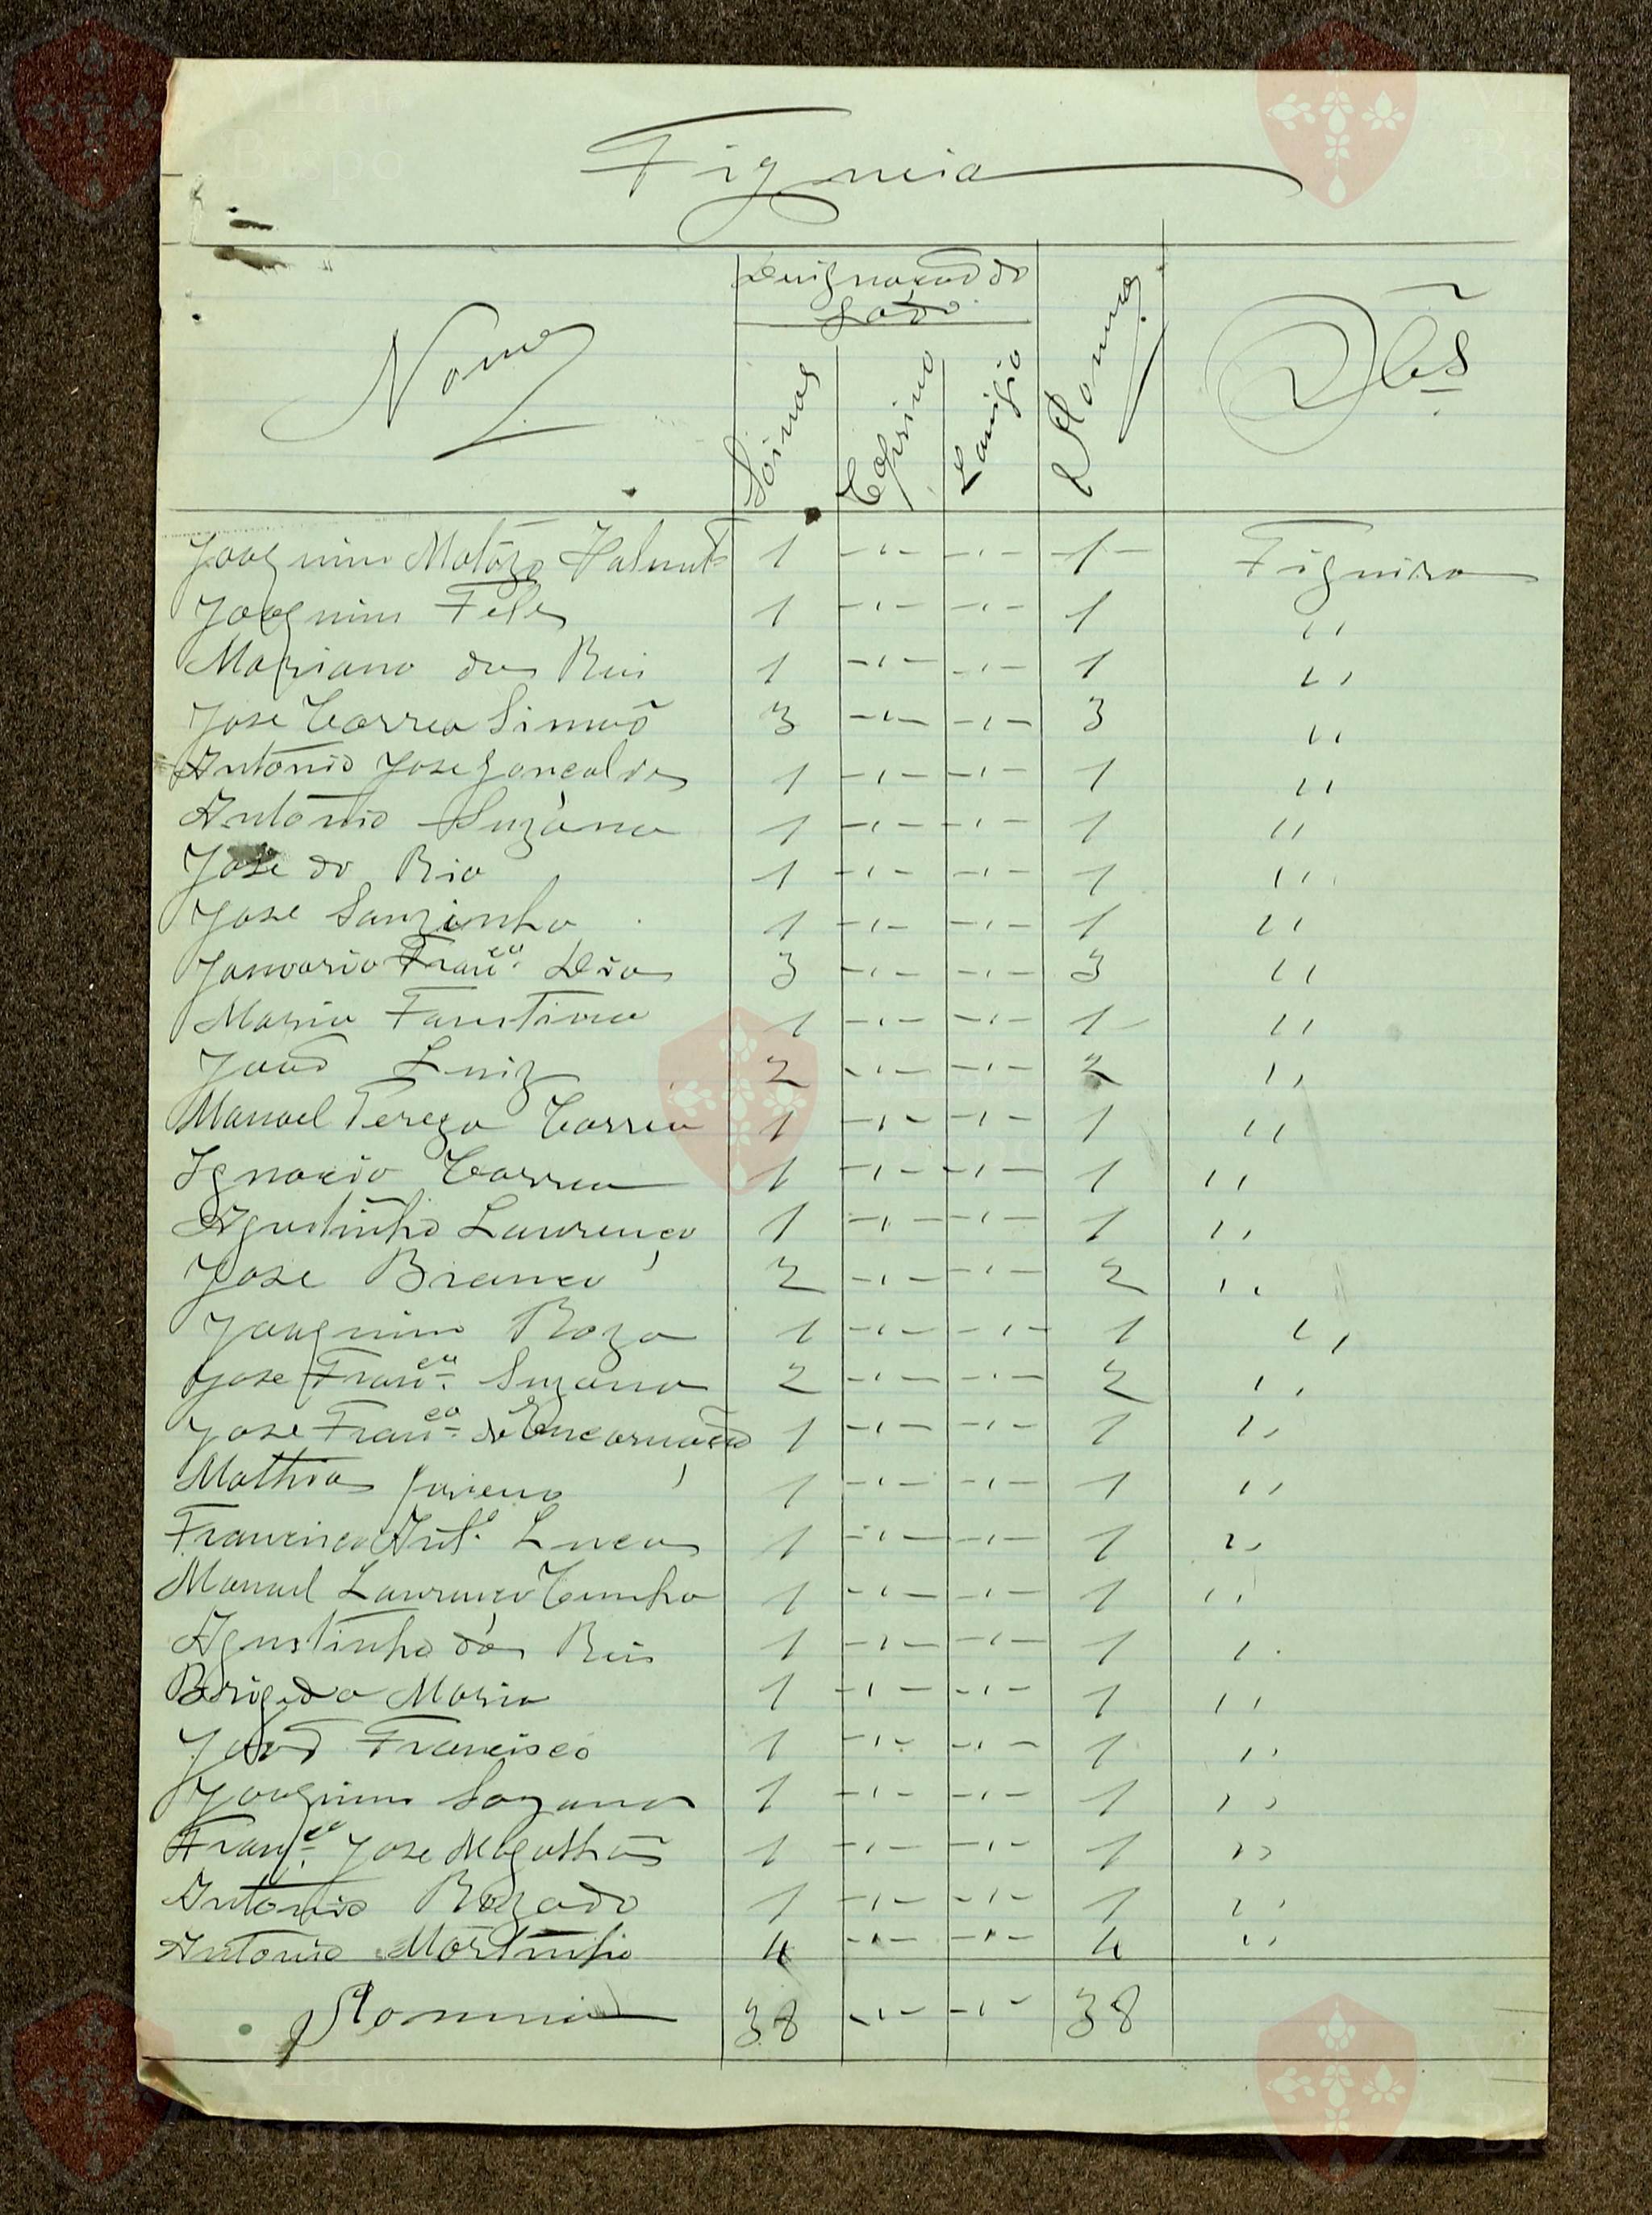 Figueira
Nomes
Designação do
Gado
Soinos
Caprino
Lanigio
Somma
Obs
Joaquim Matozo 1 -"- -"- 1 Figueira
Joaquim Felis 1 -"- -"- 1 "
Mariano dos Reis 1 -"- -"- 1 "
Jose Correa Simão 3 -"- -"- 3 "
Antonio Jose Gonçalves 1 -"- -"- 1 "
Antonio Suzána 1 -"- -"- 1 "
Jose do Rio 1 -"- -"- 1 "
Jose Sanzinho 1 -"- -"- 1 "
Januario Franco. Dias 3 -"- -"- 3 "
Maria Faustina 1 -"- -"- 1 "
João Luiz 2 -"- -"- 2 "
Manoel Tereza Correia 1 -"- -"- 1 "
Ignacio Correa 1 -"- -"- 1 "
Agustinho Lourenço 1 -"- -"- 1 "
Jose Branco 2 -"- -"- 2 "
Joaquim Roza 1 -"- -"- 1 "
Jose Franco. Suzana 2 -"- -"- 2 "
Jose Franco. da Encarnação 1 -"- -"- 1 "
Mathias 1 -"- -"- 1 "
Francisco Anto. Lucas 1 -"- -"- 1 "
Manuel Lourenço Cunha 1 -"- -"- 1 "
Agustinho dos Reis 1 -"- -"- 1 "
Brigida Maria 1 -"- -"- 1 "
João Francisco 1 -"- -"- 1 "
Joaquim Sozana 1 -"- -"- 1 "
Franco. Jose Magalhães 1 -"- -"- 1 "
Antonio Rozado 1 -"- -"- 1 "
Antonio Martinho 4 -"- -"- 4 "
Somma 38 -"- -"- 38
Vila do
Bispo